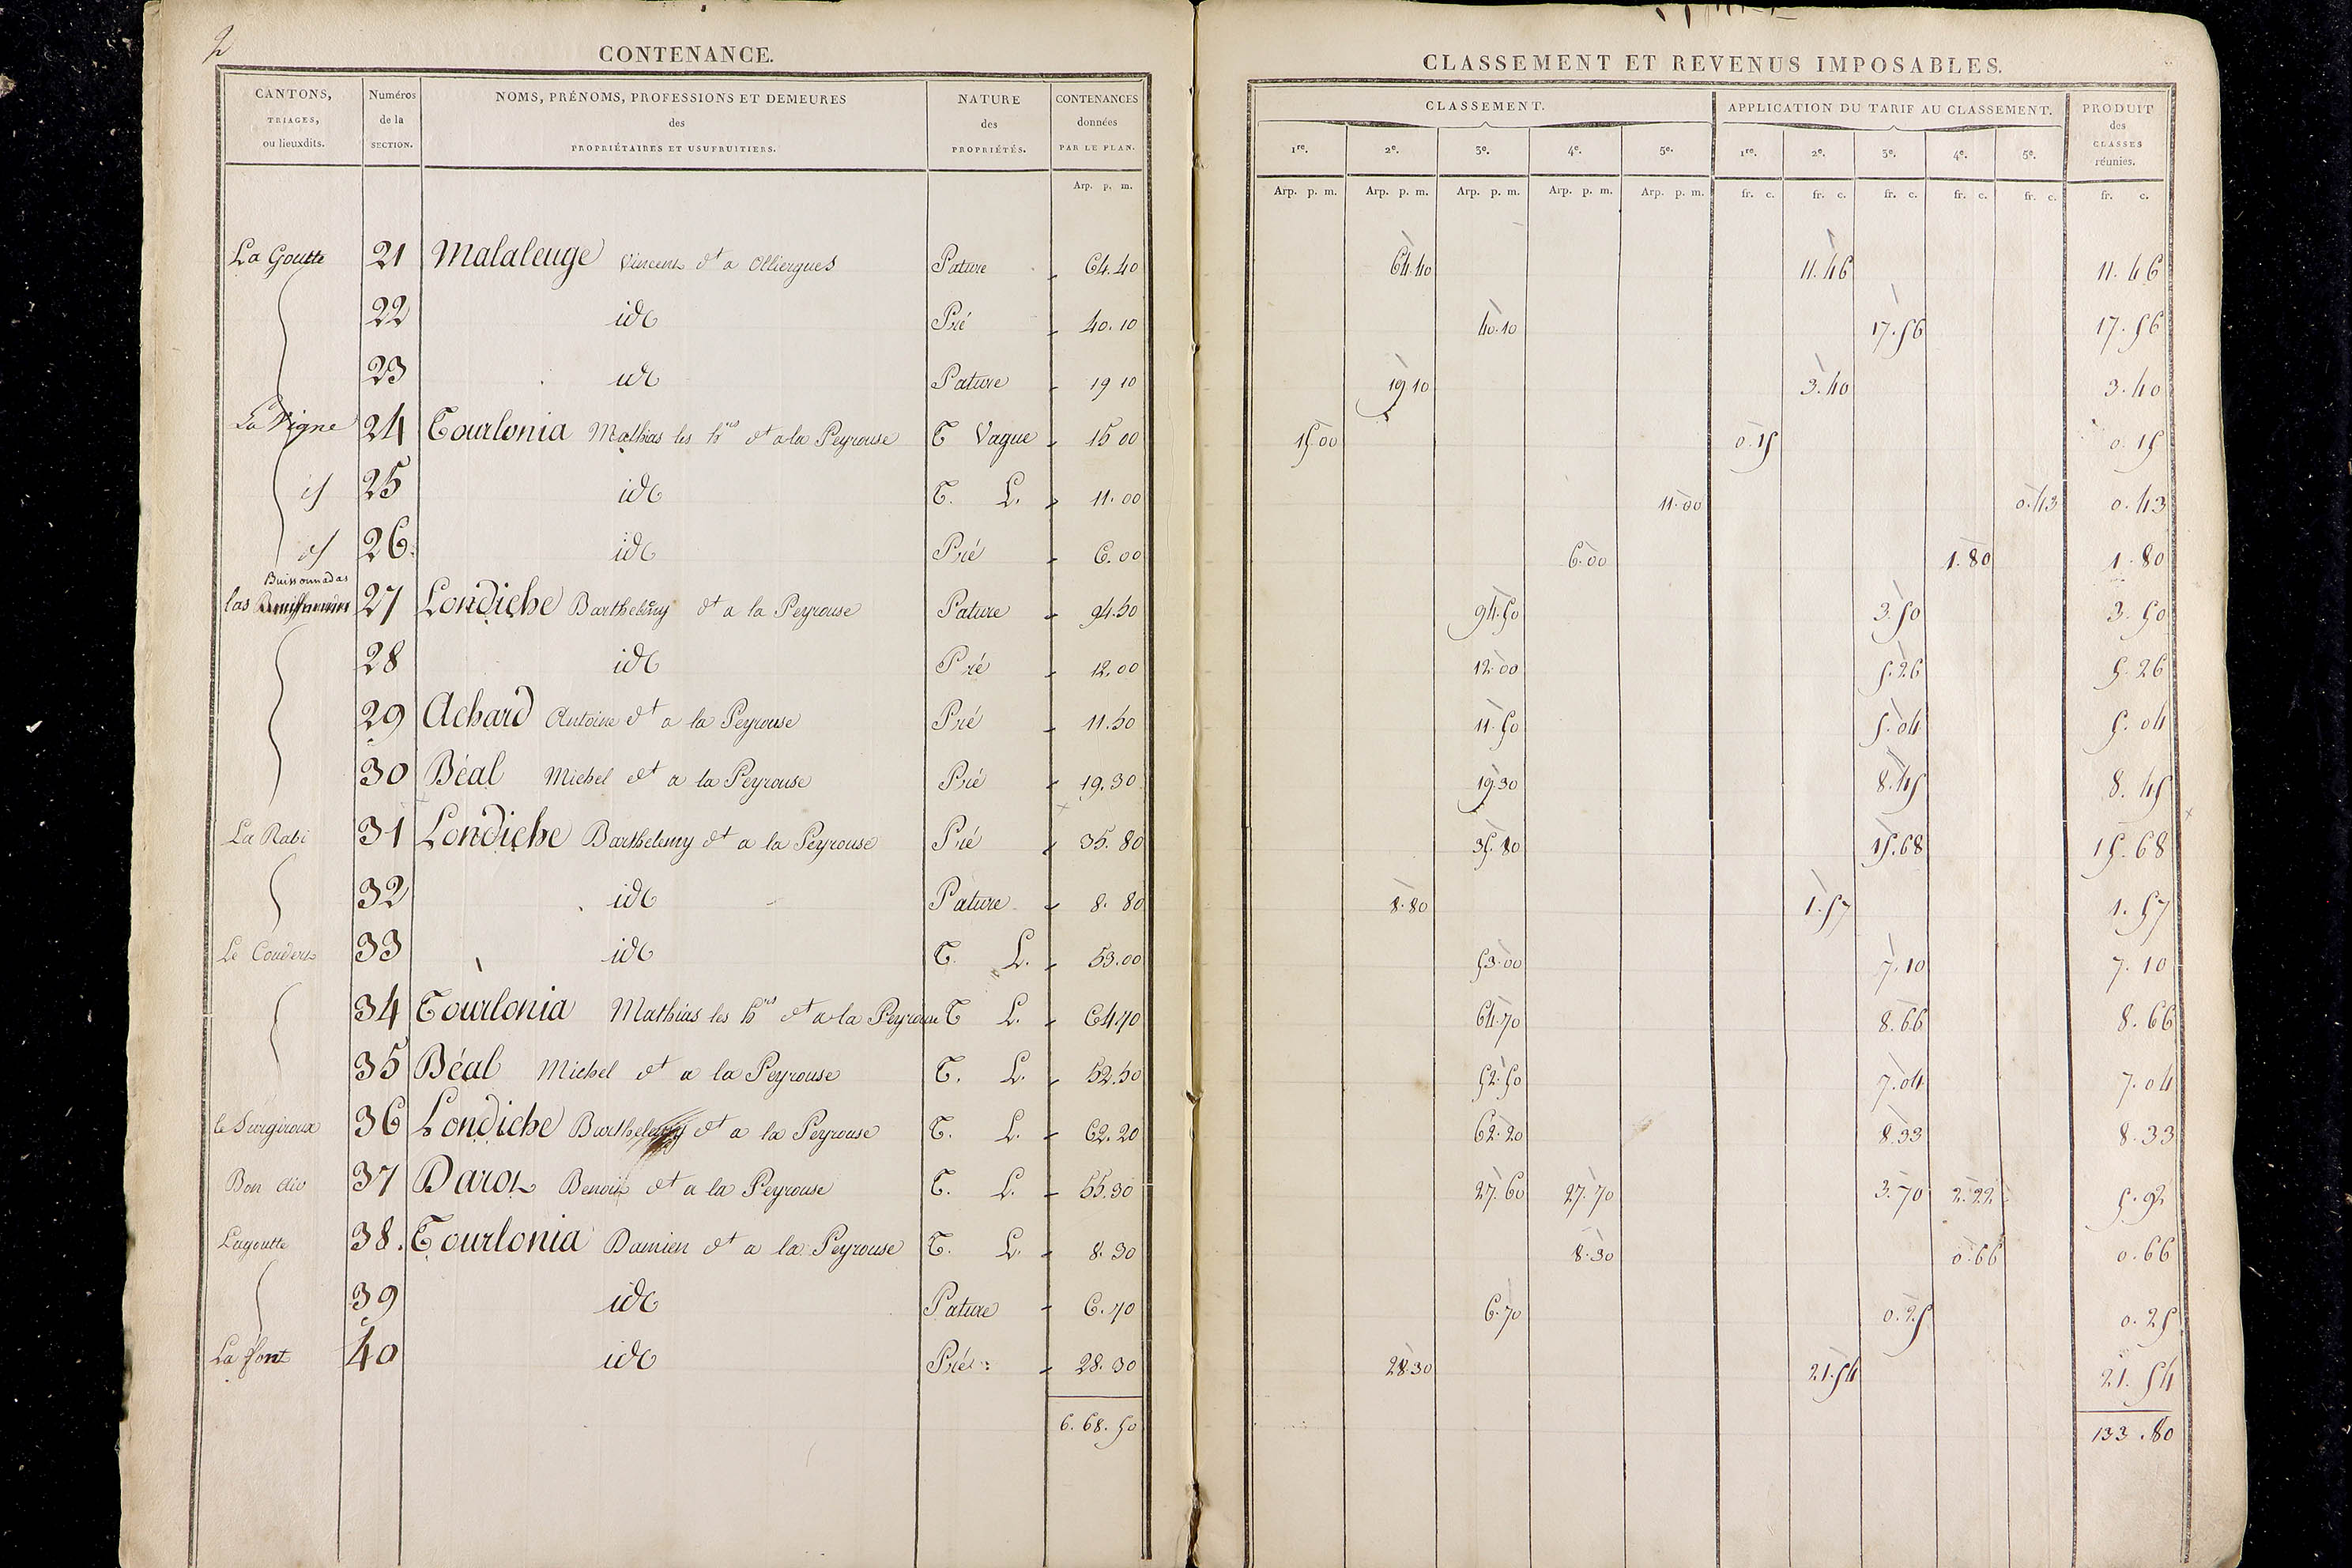 2
CONTENANCE.
CANTONS, TRIAGES, ou lieuxdits. | Numéros de la SECTION. | NOMS, PRÉNOMS, PROFESSIONS ET DEMEURES des PROPRIÉTAIRES ET USUFRUITIERS. | NATURE des PROPRIÉTÉS. | CONTENANCES données PAR LE PLAN.
Arp. p. m.
La Goutte 21 Malaleuge Vincent dt a Olliergues Pature 64.40
22 id Pré 40.10
23 id Pature 19 10
La Vigne 24 Tourlonia Mathias les hrs dt a la Peyrouse T Vague 15 00
id 25 id T. L. 11.00
id 26. id Pré 6.00
Buissonnadas
las 27 Londiche Barthelemy dt a la Peyrouse Pature 94.50
28 id Pré 12.00
29 Achard Antoine dt a la Peyrouse Pré 11.50
30 Béal Michel dt a la Peyrouse Pré 19.30
La Rabi 31 Londiche Barthelemy dt a la Peyrouse Pré 35.80
32 id Pature 8.80
Le Couderc 33 id T. L. 53.00
34 Tourlonia Mathias les hrs dt a la Peyrouse T L. 64.70
35 Béal Michel dt a la Peyrouse T. L. 52.50
le Surgiroux 36 Londiche Barthelemy dt a la Peyrouse T. L. 62.20
Bon 37 Darot Benoit dt a la Peyrouse T. L. 55.30
Lagoutte 38. Tourlonia Damien dt a la Peyrouse T. L. 8.30
39 id Pature 6.70
La font 40 id Pré 28.30
6.68.50
CLASSEMENT ET REVENUS IMPOSABLES.
CLASSEMENT. | APPLICATION DU TARIF AU CLASSEMENT. | PRODUIT des CLASSES réunies.
1re. 2e. 3e. 4e. 5e. 1re. 2e. 3e. 4e. 5e.
Arp. p. m. Arp. p. m. Arp. p. m. Arp. p. m. Arp. p. m. fr. c. fr. c. fr. c. fr. c. fr. c. fr. c.
64.40 11.46 11.46
40.10 17.56 17.56
19 10 3.40 3.40
15.00 0.15 0.15
11.00 0.43 0.43
6.00 1.80 1.80
94.50 3.50 3.50
12.00 5.26 5.26
11.50 5.04 5.04
19.30 8.45 8.45
35.80 15.68 15.68
8.80 1.57 1.57
53.00 7.10 7.10
64.70 8.66 8.66
52.50 7.04 7.04
62.20 8.33 8.33
27.60 27.70 3.70 2.22 5.92
8.30 0.66 0.66
6.70 0.25 0.25
28.30 21.54 21.54
133.80